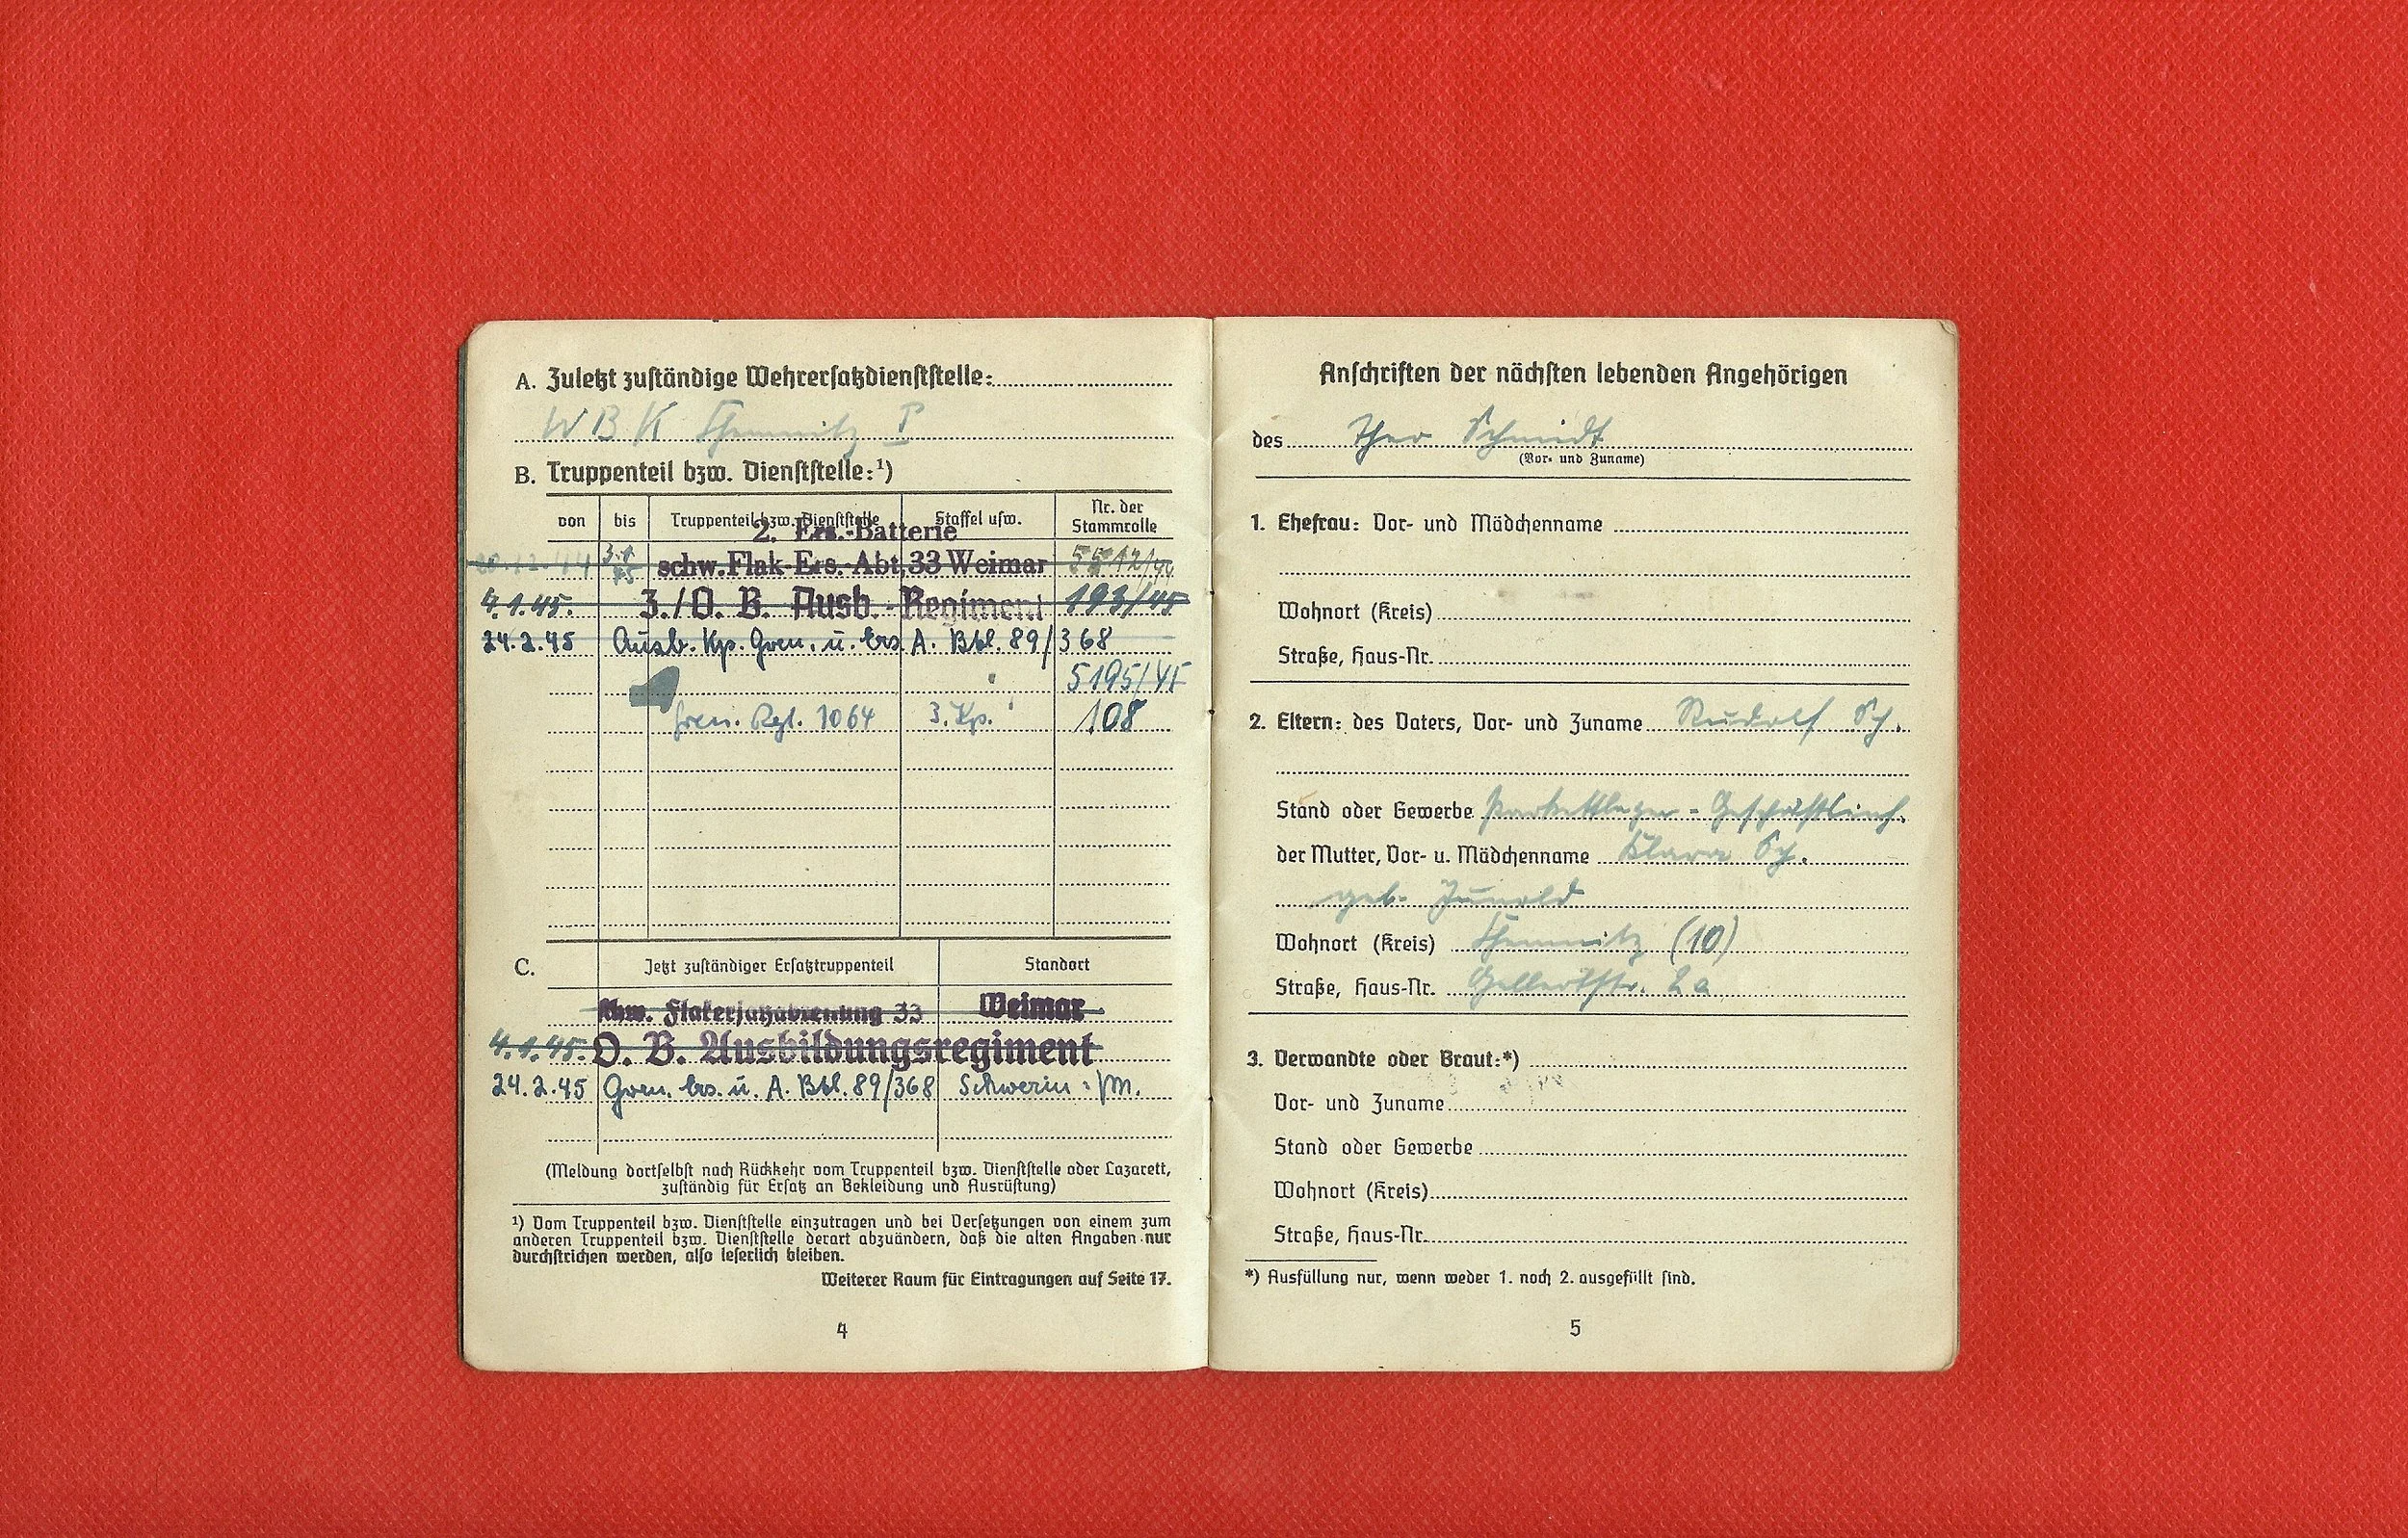 A. Zuletzt zuständige Wehrersatzdienststelle:
W B K Chemnitz I
B. Truppenteil bzw. Dienststelle:¹)
von bis Truppenteil bzw. Dienststelle Staffel usw. Nr. der Stammrolle
2. Ers.-Batterie
schw. Flak-Ers.-Abt. 33 Weimar 5512/44
4.1.45. 3./O. B. Ausb.-Regiment 193/45
24.2.45 Ausb. Kp. Gren. u. Ers. A. Btl. 89/368
5195/45
Gren. Rgt. 1064 3. Kp. 108
C. Jetzt zuständiger Ersatztruppenteil Standort
schw. Flakersatzabteilung 33 Weimar
4.1.45. O. B. Ausbildungsregiment
24.2.45 Gren. Ers. u. A. Btl. 89/368 Schwerin i/M.
(Meldung dortselbst nach Rückkehr vom Truppenteil bzw. Dienststelle oder Lazarett,
zuständig für Ersatz an Bekleidung und Ausrüstung)
¹) Vom Truppenteil bzw. Dienststelle einzutragen und bei Versetzungen von einem zum
anderen Truppenteil bzw. Dienststelle derart abzuändern, daß die alten Angaben nur
durchstrichen werden, also leserlich bleiben.
Weiterer Raum für Eintragungen auf Seite 17.
4
Anschriften der nächsten lebenden Angehörigen
des Theo Schmidt
(Vor- und Zuname)
1. Ehefrau: Vor- und Mädchenname
Wohnort (Kreis)
Straße, Haus-Nr.
2. Eltern: des Vaters, Vor- und Zuname Rudolf Sch.
Stand oder Gewerbe Parkettleger -
der Mutter, Vor- u. Mädchenname Klara Sch.
geb. Junold
Wohnort (Kreis) Chemnitz (10)
Straße, Haus-Nr. Gellertstr. 2a
3. Verwandte oder Braut:*)
Vor- und Zuname
Stand oder Gewerbe
Wohnort (Kreis)
Straße, Haus-Nr.
*) Ausfüllung nur, wenn weder 1. noch 2. ausgefüllt sind.
5